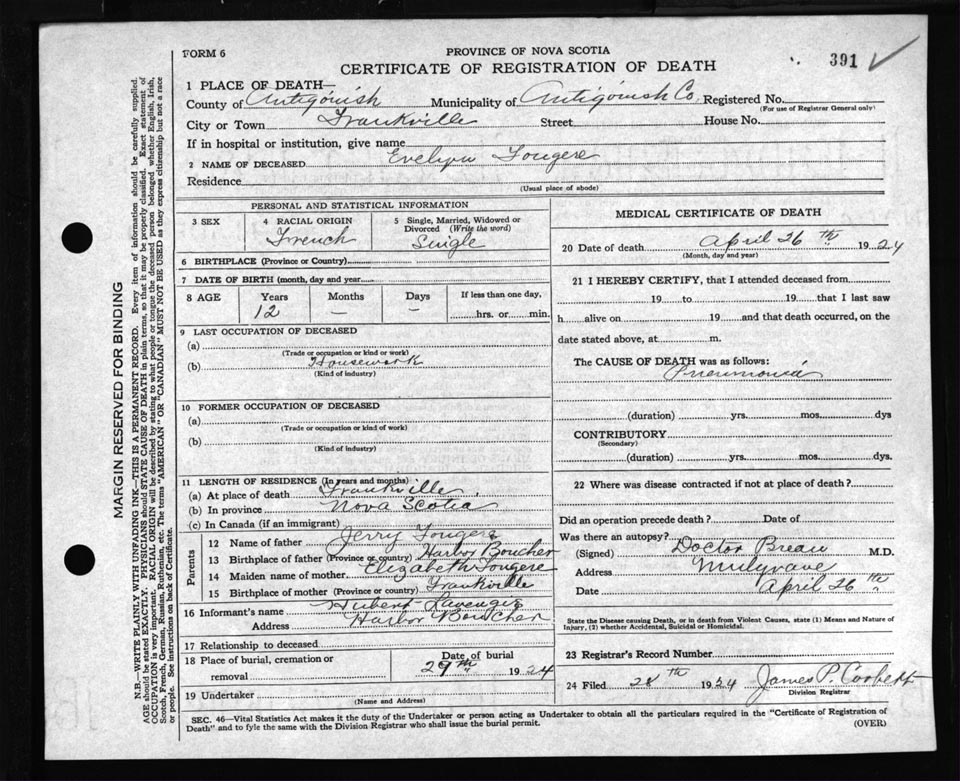 FORM 6
PROVINCE OF NOVA SCOTIA
391
CERTIFICATE OF REGISTRATION OF DEATH
1 PLACE OF DEATH—
County of Antigonish Municipality of Antigonish Co. Registered No.
(For use of Registrar General only)
City or Town Frankville Street House No.
If in hospital or institution, give name
2 NAME OF DECEASED Evelyn Fougere
Residence
(Usual place of abode)
PERSONAL AND STATISTICAL INFORMATION
3 SEX
4 RACIAL ORIGIN
French
5 Single, Married, Widowed or
Divorced (Write the word)
Single
6 BIRTHPLACE (Province or Country)
7 DATE OF BIRTH (month, day and year)
8 AGE Years Months Days If less than one day,
12 — — hrs. or min.
9 LAST OCCUPATION OF DECEASED
(a)
(Trade or occupation or kind or work)
(b) Housework
(Kind of industry)
10 FORMER OCCUPATION OF DECEASED
(a)
(Trade or occupation or kind of work)
(b)
(Kind of industry)
11 LENGTH OF RESIDENCE (In years and months)
(a) At place of death Frankville
(b) In province Nova Scotia
(c) In Canada (if an immigrant)
Parents
12 Name of father Jerry Fougere
13 Birthplace of father (Province or country) Harbor Boucher
14 Maiden name of mother Elizabeth Fougere
15 Birthplace of mother (Province or country) Frankville
16 Informant's name Hubert
Address Harbor Boucher
17 Relationship to deceased
18 Place of burial, cremation or
removal
Date of burial
29th 1924
19 Undertaker
(Name and Address)
MEDICAL CERTIFICATE OF DEATH
20 Date of death April 26th 1924
(Month, day and year)
21 I HEREBY CERTIFY, that I attended deceased from
19 to 19 that I last saw
h alive on 19 and that death occurred, on the
date stated above, at m.
The CAUSE OF DEATH was as follows:
Pneumonia
(duration) yrs. mos. dys
CONTRIBUTORY
(Secondary)
(duration) yrs. mos. dys.
22 Where was disease contracted if not at place of death?
Did an operation precede death? Date of
Was there an autopsy?
(Signed) Doctor Breau M.D.
Address Mulgrave
Date April 26th
State the Disease causing Death, or in death from Violent Causes, state (1) Means and Nature of
Injury, (2) whether Accidental, Suicidal or Homicidal.
23 Registrar's Record Number
24 Filed 28th 1924 James P. Corbett
Division Registrar
SEC. 46—Vital Statistics Act makes it the duty of the Undertaker or person acting as Undertaker to obtain all the particulars required in the "Certificate of Registration of
Death" and to fyle the same with the Division Registrar who shall issue the burial permit.
(OVER)
MARGIN RESERVED FOR BINDING
N.B.—WRITE PLAINLY WITH UNFADING INK—THIS IS A PERMANENT RECORD. Every item of information should be carefully supplied.
AGE should be stated EXACTLY. PHYSICIANS should STATE CAUSE OF DEATH in plain terms, so that it may be properly classified. Exact statement of
OCCUPATION is very important. RACIAL ORIGIN will be described by stating to what people or tongue the deceased person belonged whether English, Irish,
Scotch, French, German, Russian, Ruthenian, etc. The terms "AMERICAN" OR "CANADIAN" MUST NOT BE USED as they express citizenship but not a race
or people. See instructions on back of Certificate.